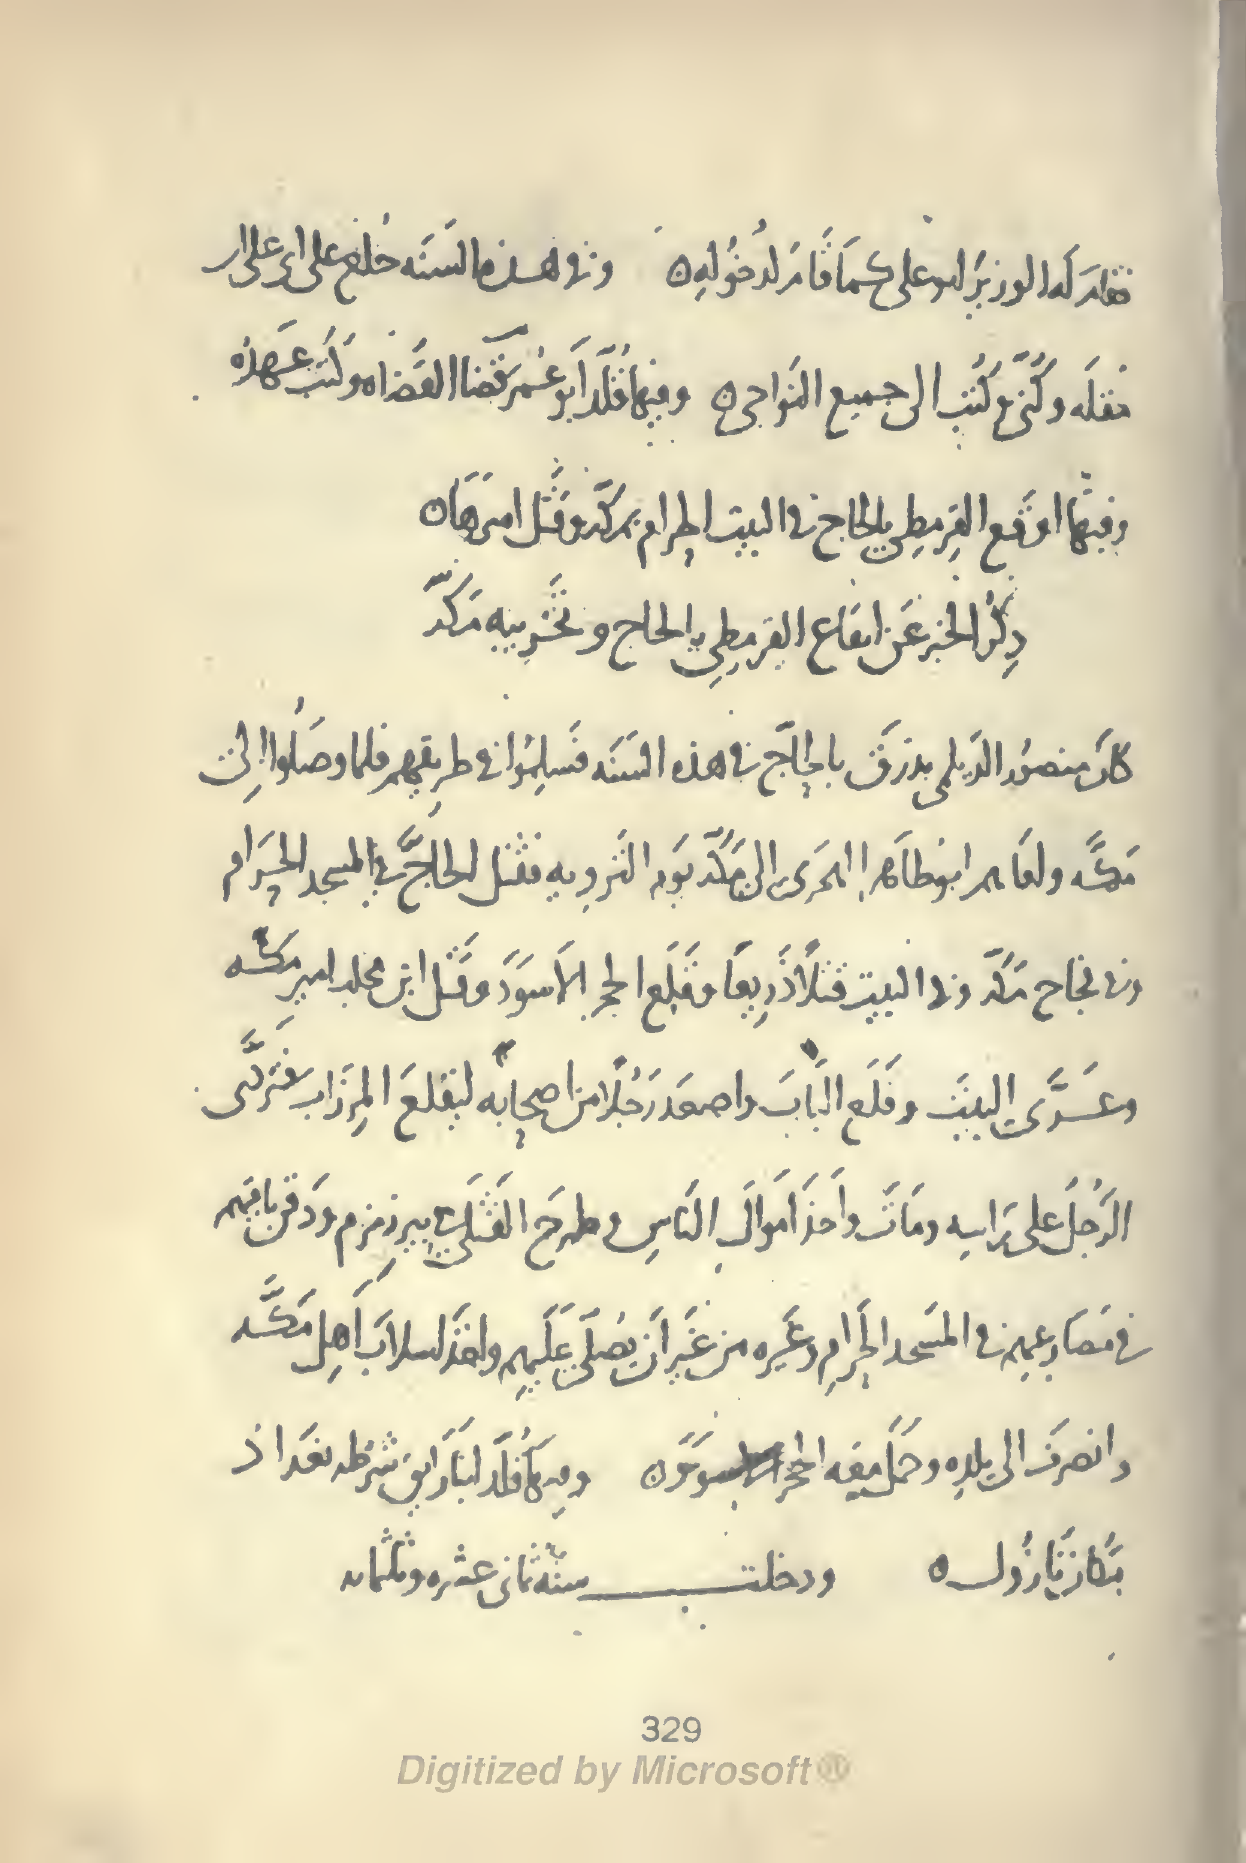 فقام له الوزير ابو على كما قام لدخوله ه وفى هذه السنه خلع على ابى على ابن
مقله وكنى وكتب الى جميع النواحى ه وفيها قلد ابو عمر قضا القضاه وكتب عهده
وفيها اوقع القرمطى بالحاج فى البيت الحرام بمكه وقتل اميرها ه
ذكر الخبر عن ايقاع القرمطى بالحاج وتخريبه مكه
كان منصور الديلمى بذرق بالحاج فى هذه السنه فسلموا فى طريقهم فلما وصلوا الى
مكه وافاهم ابو طاهر الهجرى الى مكه يوم الترويه فقتل الحاج فى المسجد الحرام
وفى فجاج مكه وفى البيت قتلا ذريعا وقلع الحجر الاسود وقتل ابن محلب امير مكه
وعرى البيت وقلع الباب واصعد رجلا من اصحابه ليقلع المرزاب فتردى
الرجل على راسه ومات واخذ اموال الناس وطرح القتلى فى بير زمزم ودفن باقيهم
فى مصارعهم فى المسجد الحرام وغيره من غير ان يصلى عليهم واخذ اسلاب اهل مكه
وانصرف الى بلده وحمل معه الحجر الاسود ه وفيها قلد ابنا رايق شرطه بغداذ
مكان نازوك ه ودخلت سنه ثمانى عشره وثلثمايه
329
Digitized by Microsoft®